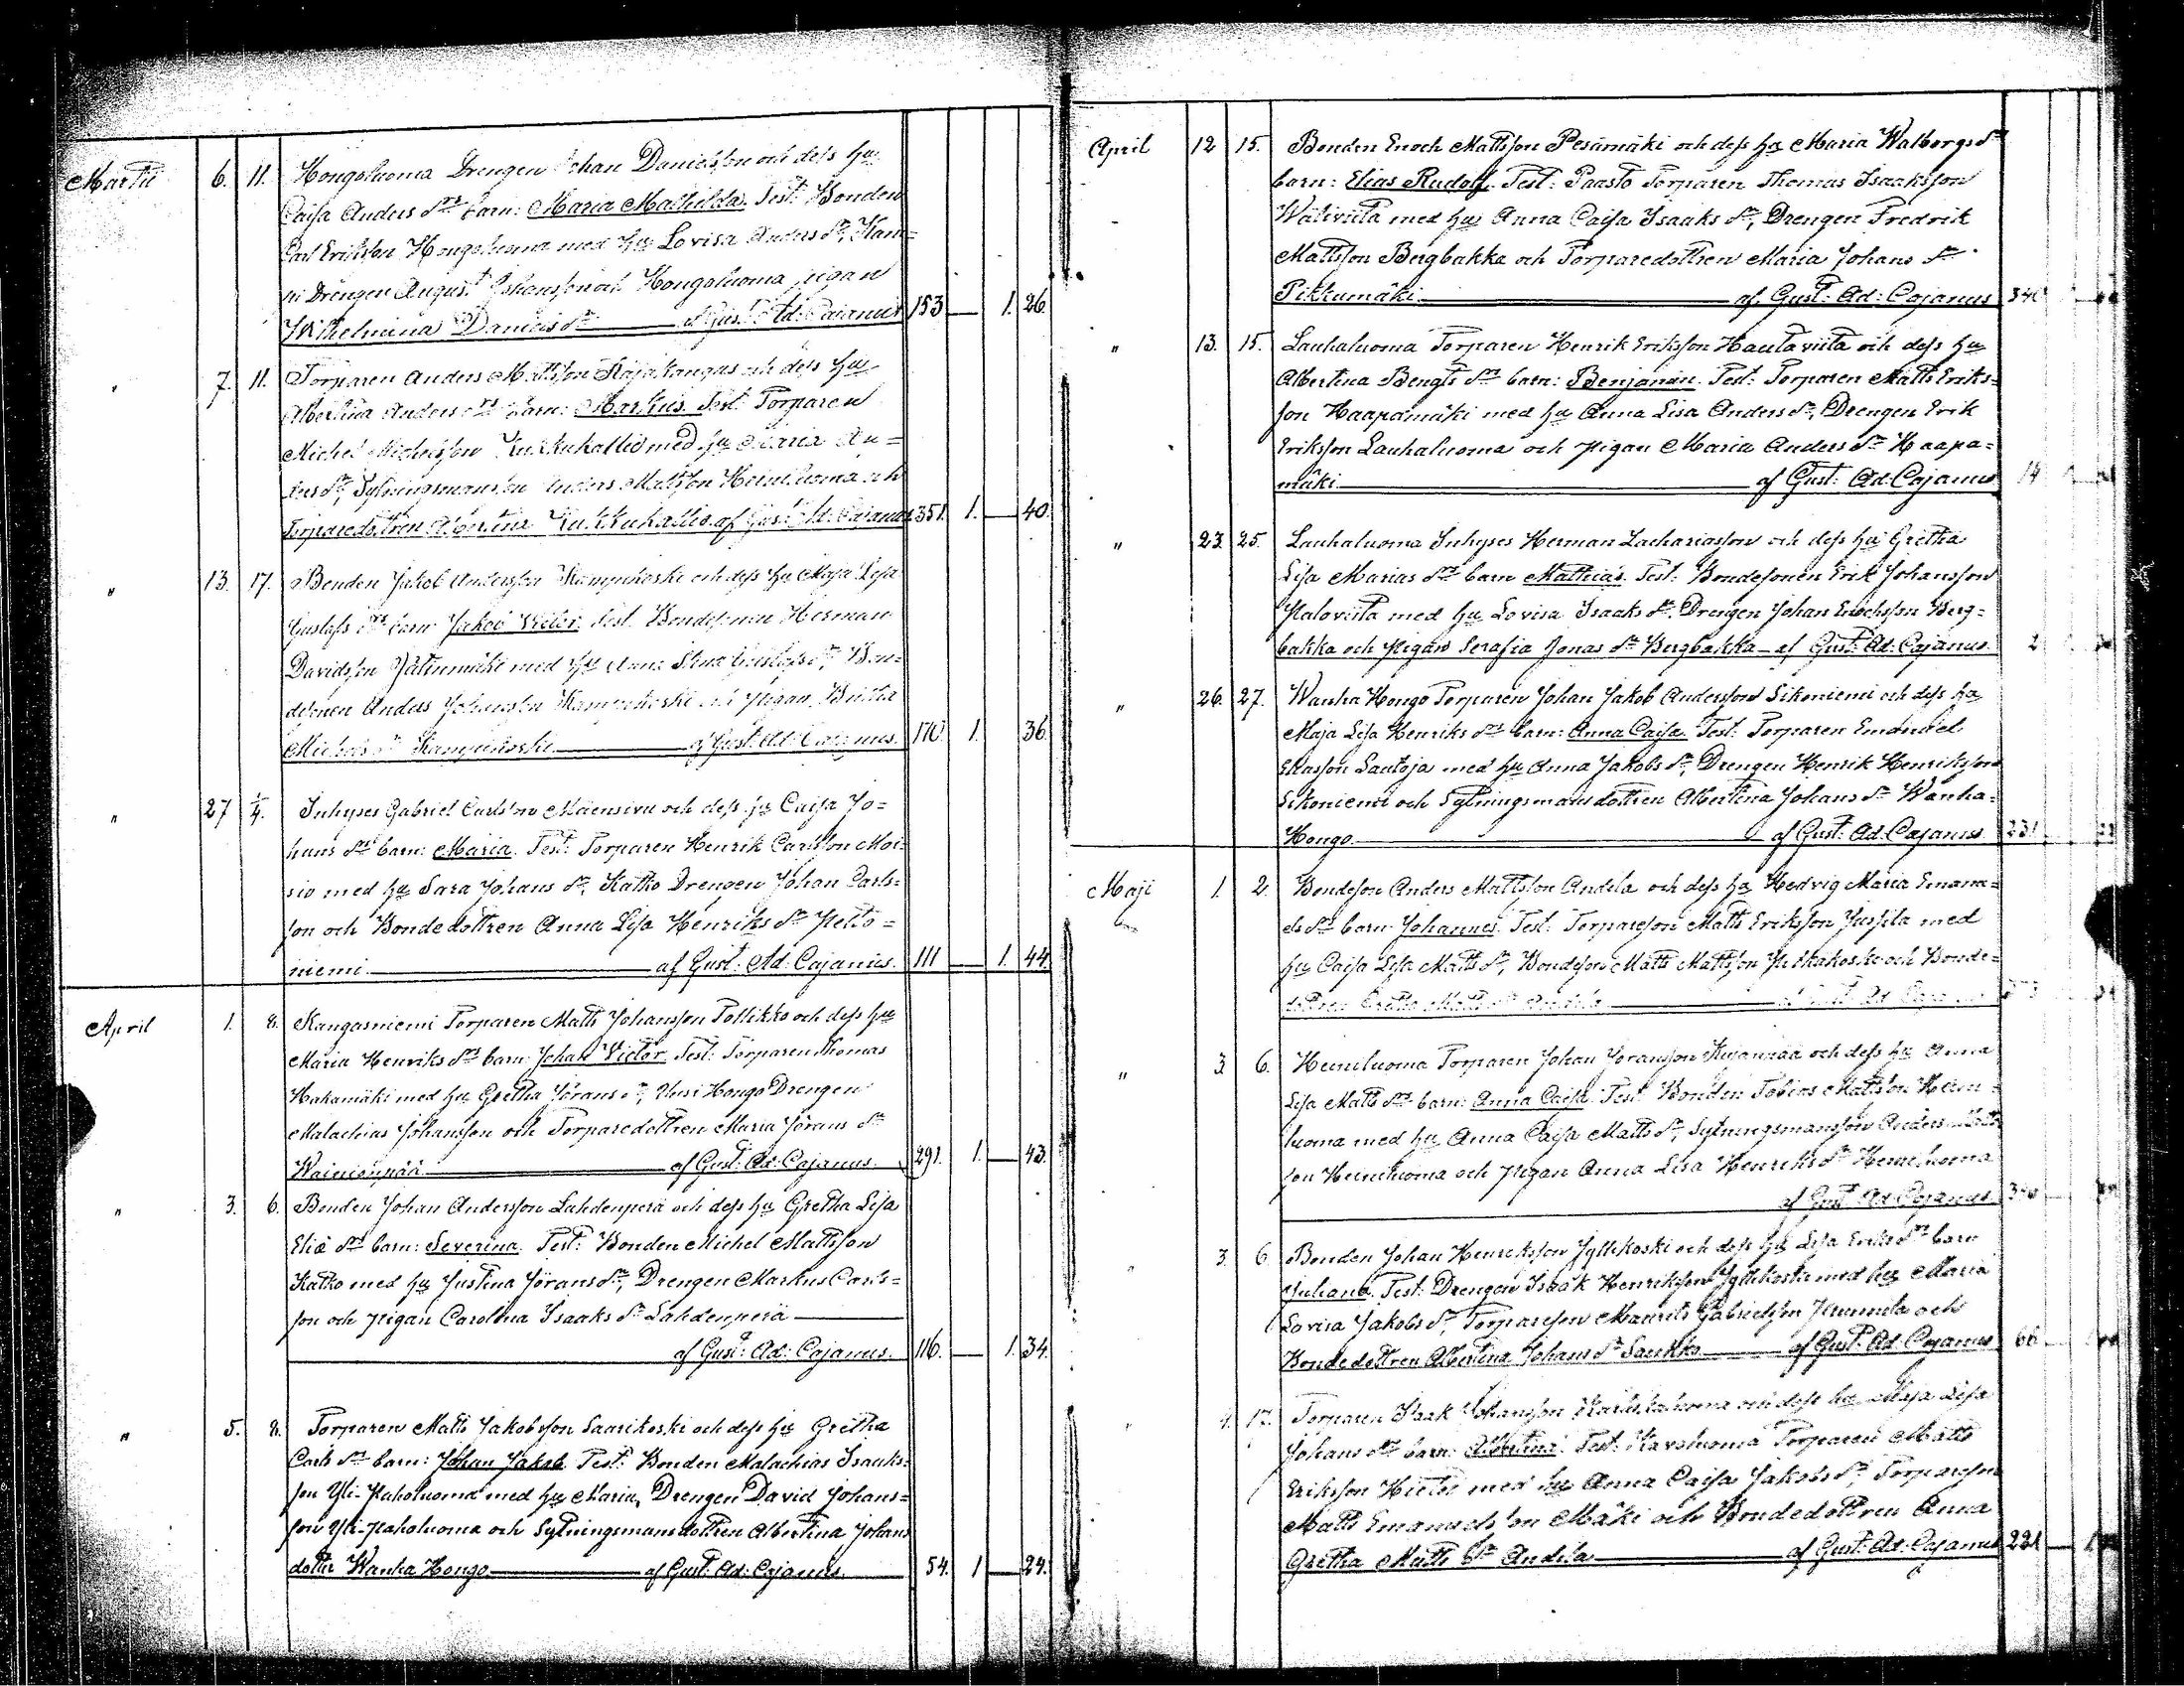 Martii 6. 11. Hongoluoma Drengen Johan Danielsson och dess hu
Caisa Anders drs barn: Maria Mathilda. Test: Bonden
Carl Eriksson Hongoluoma med hu Lovisa Anders dr, Kam=
pi Drengen August Johansson och Hongoluoma pigan
Wilhelmina Daniels dr — af Gust: Ad: Cajanus 153 — 1. 26.
" 7. 11. Torparen Anders Mattsson Rajakangas och dess hu
Albertina Anders drs barn: Markus. Test: Torparen
Michel Michelsson Kukkukallio med hu Maria An=
ders dr, Sytningsmansson Anders Mattsson Heiniluoma och
Torparedottren Albertina Kukkukallio af Gust: Ad: Cajanus 351. 1. — 40.
" 13. 17. Bonden Jakob Andersson Kampinkoski och dess hu Maja Lisa
Gustafs drs barn: Jakob Victor. Test: Bondesonen Herman
Davidsson Jätinmäki med hu Anna Stina Gustafs dr, Bon=
desonen Anders Johansson Kampinkoski och pigan Britha
Michels dr Kampinkoski — af Gust: Ad: Cajanus. 170. 1. 36.
" 27 1/4. Inhyses Gabriel Carlsson Mäensivu och dess hu Caisa Jo=
hans drs barn: Maria. Test: Torparen Henrik Carlsson Moi=
sio med hu Sara Johans dr, Katko Drengen Johan Carls=
son och Bondedottren Anna Lisa Henriks dr Pelto=
niemi — af Gust: Ad: Cajanus. 111 — 1. 44.
April 1. 8. Kangasniemi Torparen Matts Johansson Pollikko och dess hu
Maria Henriks drs barn: Johan Victor. Test: Torparen Thomas
Hakamäki med hu Gretha Jörans dr, Uusi Hongo Drengen
Malachias Johansson och Torparedottren Maria Jörans dr
Wainionpää — af Gust: Ad: Cajanus. 291. 1. — 43.
" 3. 6. Bonden Johan Andersson Lahdenperä och dess hu Gretha Lisa
Eliæ drs barn: Severina. Test: Bonden Michel Mattsson
Katko med hu Justina Jörans dr, Drengen Markus Carls=
son och pigan Carolina Isaaks dr Lahdenperä —
af Gust: Ad: Cajanus. 116. — 1. 34.
" 5. 8. Torparen Matts Jakobsson Saarikoski och dess hu Gretha
Carls drs barn: Johan Jakob. Test: Bonden Malachias Isaaks=
son Yli-Pahaluoma med hu Maria, Drengen David Johans=
son Yli-Pahaluoma och Sytningsmansdottren Albertina Johans
dotter Wanha Hongo — af Gust: Ad: Cajanus. 54. 1 — 24.
April 12 15. Bonden Enoch Mattsson Pesämäki och dess hu Maria Walborgs drs
barn: Elias Rudolf. Test: Paasto Torparen Thomas Isaaksson
Wäliviita med hu Anna Caisa Isaaks dr, Drengen Fredrik
Mattsson Bergbakka och Torparedottren Maria Johans dr
Pikkumäki — af Gust: Ad: Cajanus 340
" 13. 15. Lauhaluoma Torparen Henrik Eriksson Hautaviita och dess hu
Albertina Bengts drs barn: Benjamin. Test: Torparen Matts Eriks=
son Haapamäki med hu Anna Lisa Anders dr, Drengen Erik
Eriksson Lauhaluoma och pigan Maria Anders dr Haapa=
mäki — af Gust: Ad: Cajanus 14
" 23. 25. Lauhaluoma Inhyses Herman Zachariasson och dess hu Gretha
Lisa Marias drs barn Mathias. Test: Bondesonen Erik Johansson
Paloviita med hu Lovisa Isaaks dr, Drengen Johan Enochsson Berg=
bakka och Pigan Serafia Jonas dr Bergbakka — af Gust: Ad: Cajanus. 2
" 26. 27. Wanha Hongo Torparen Johan Jakob Andersson Sikoniemi och dess hu
Maja Lisa Henriks drs barn: Anna Caisa. Test: Torparen Emanuel
Eliasson Lautoja med hu Anna Jakobs dr, Drengen Henrik Henriksson
Sikoniemi och Sytningsmansdottren Albertina Johans dr Wanha-
Hongo — af Gust: Ad: Cajanus. 231.
Maji 1. 2. Bondeson Anders Mattsson Andila och dess hu Hedvig Maria Emanu=
els drs barn Johannes. Test: Torpareson Matts Eriksson Jussila med
hu Caisa Lisa Matts dr, Bondeson Matts Mattsson Pelhakoski och Bonde=
dottren Gretha Matts dr Andila — af Gust: Ad: Cajanus
" 3. 6. Heiniluoma Torparen Johan Jöransson Kujanpää och dess hu Anna
Lisa Matts drs barn: Anna Caisa. Test: Bonden Tobias Mattsson Heini=
luoma med hu Anna Caisa Matts dr, Sytningsmansson Anders Matts
son Heiniluoma och pigan Anna Lisa Henriks dr Heiniluoma
af Gust: Ad: Cajanus.
" 3. 6. Bonden Johan Henriksson Jyllikoski och dess hu Lisa Eriks drs barn
Juliana. Test: Drengen Isaak Henriksson Jyllikoski med hu Maria
Lovisa Jakobs dr, Torpareson Maurits Gabrielsson Nummela och
Bondedottren Albertina Johans dr Saukko — af Gust: Ad: Cajanus 66.
" 4. 17. Torparen Isaak Johansson och dess hu Maja Lisa
Johans drs barn: Albertina. Test: Karoluoma Torparen Matts
Eriksson Hietei med hu Anna Caisa Jakobs dr, Torpareson
Matts Emanuelsson Mäki och Bondedottren Anna
Gretha Matts dr Andila — af Gust: Ad: Cajanus 221